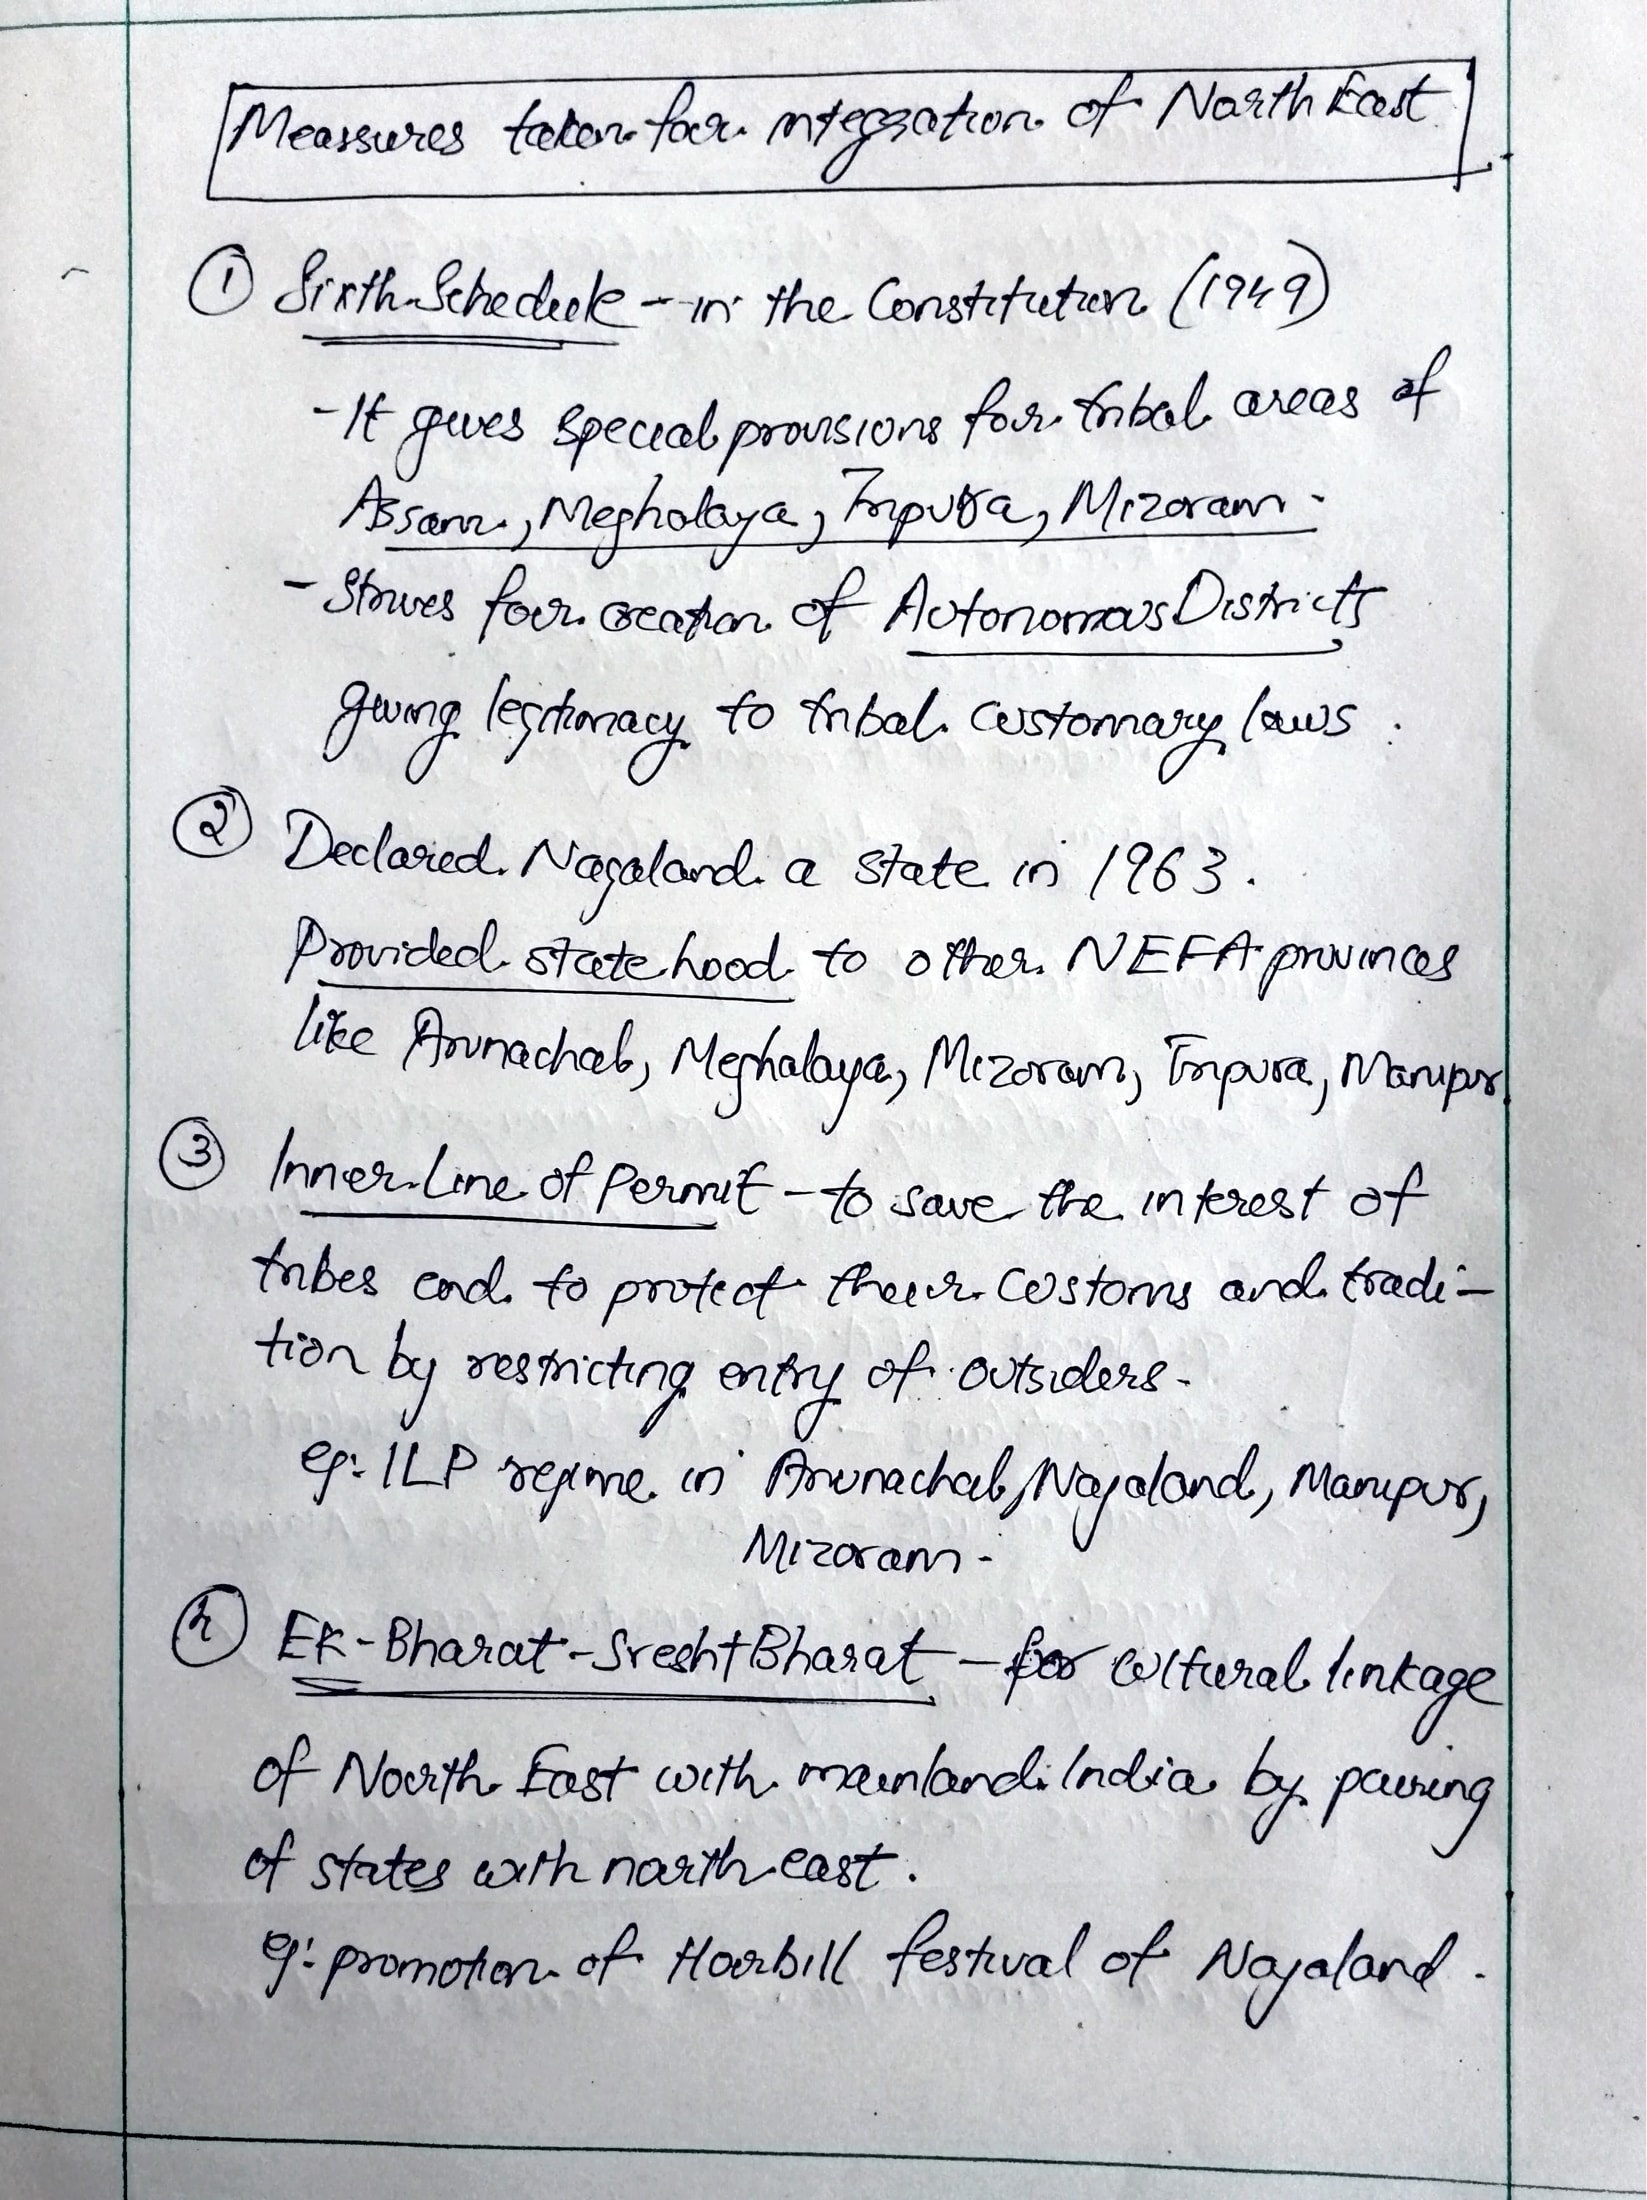 Meassures taken for integration of North East
① Sixth Schedule - in the Constitution (1949)
- It gives special provisions for tribal areas of
Assam, Meghalaya, Tripura, Mizoram.
- Strives for creation of Autonomous Districts
giving legitimacy to tribal customary laws.
② Declared Nagaland a state in 1963.
Provided statehood to other NEFA provinces
like Arunachal, Meghalaya, Mizoram, Tripura, Manipur
③ Inner Line of Permit - to save the interest of
tribes and to protect their customs and tradi-
tion by restricting entry of outsiders.
eg: ILP regime in Arunachal, Nagaland, Manipur,
Mizoram.
④ Ek-Bharat-Sresht Bharat - for cultural linkage
of North East with mainland India by pairing
of states with north east.
eg: promotion of Hornbill festival of Nagaland.